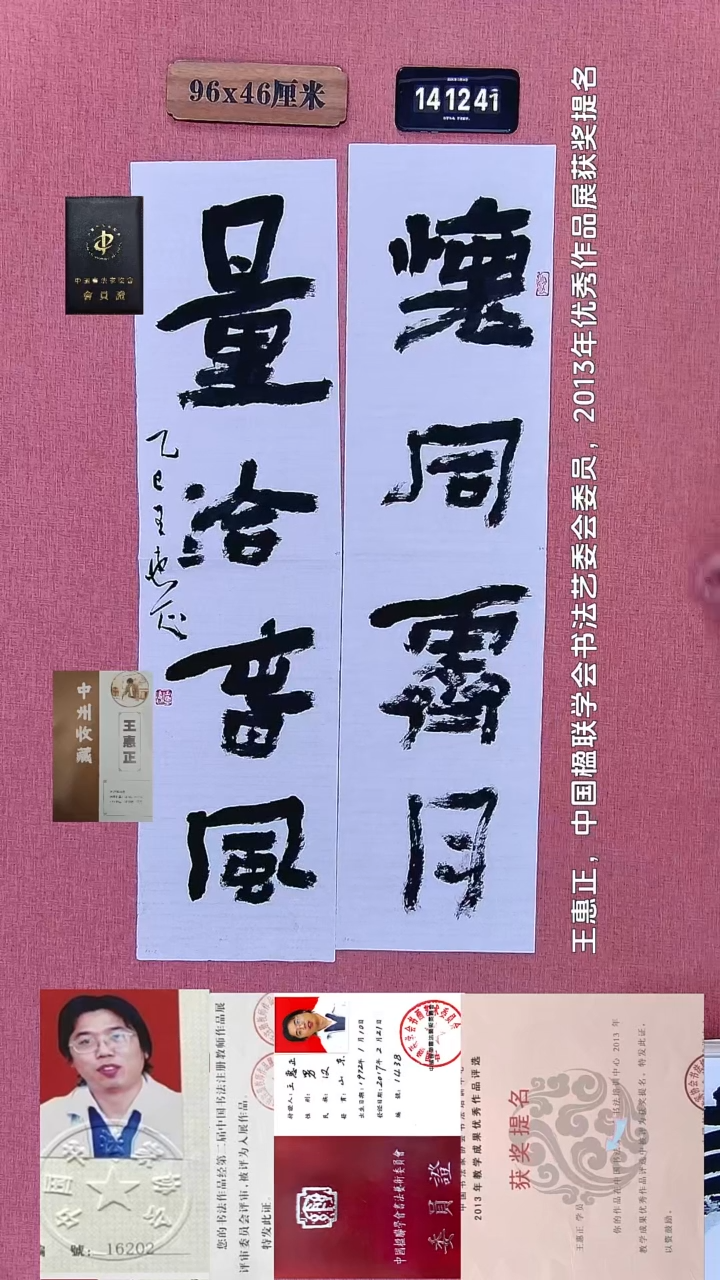 96x46厘米
14 12 41
懷同霽月
量洽春風
乙巳王惠正
王惠正
王惠正,中国楹联学会书法艺委会委员,2013年优秀作品展获奖提名
号:16202
您的书法作品经第二届中国书法注册教师作品展
评审委员会评审,被评为入展作品。
特发此证。
持证人:王惠正
性别:男
民族:汉
籍贯:山东
出生日期:1972年1月10日
发证日期:2017年2月21日
编号:1438
中國楹聯學會書法藝術委員會
委員證
2013年教学成果优秀作品评选
获奖提名
王惠正 学员
你的作品在中国书法 书法培训中心 2013 年
教学成果优秀作品评选中被评为获奖提名,特发此证,
以资鼓励。